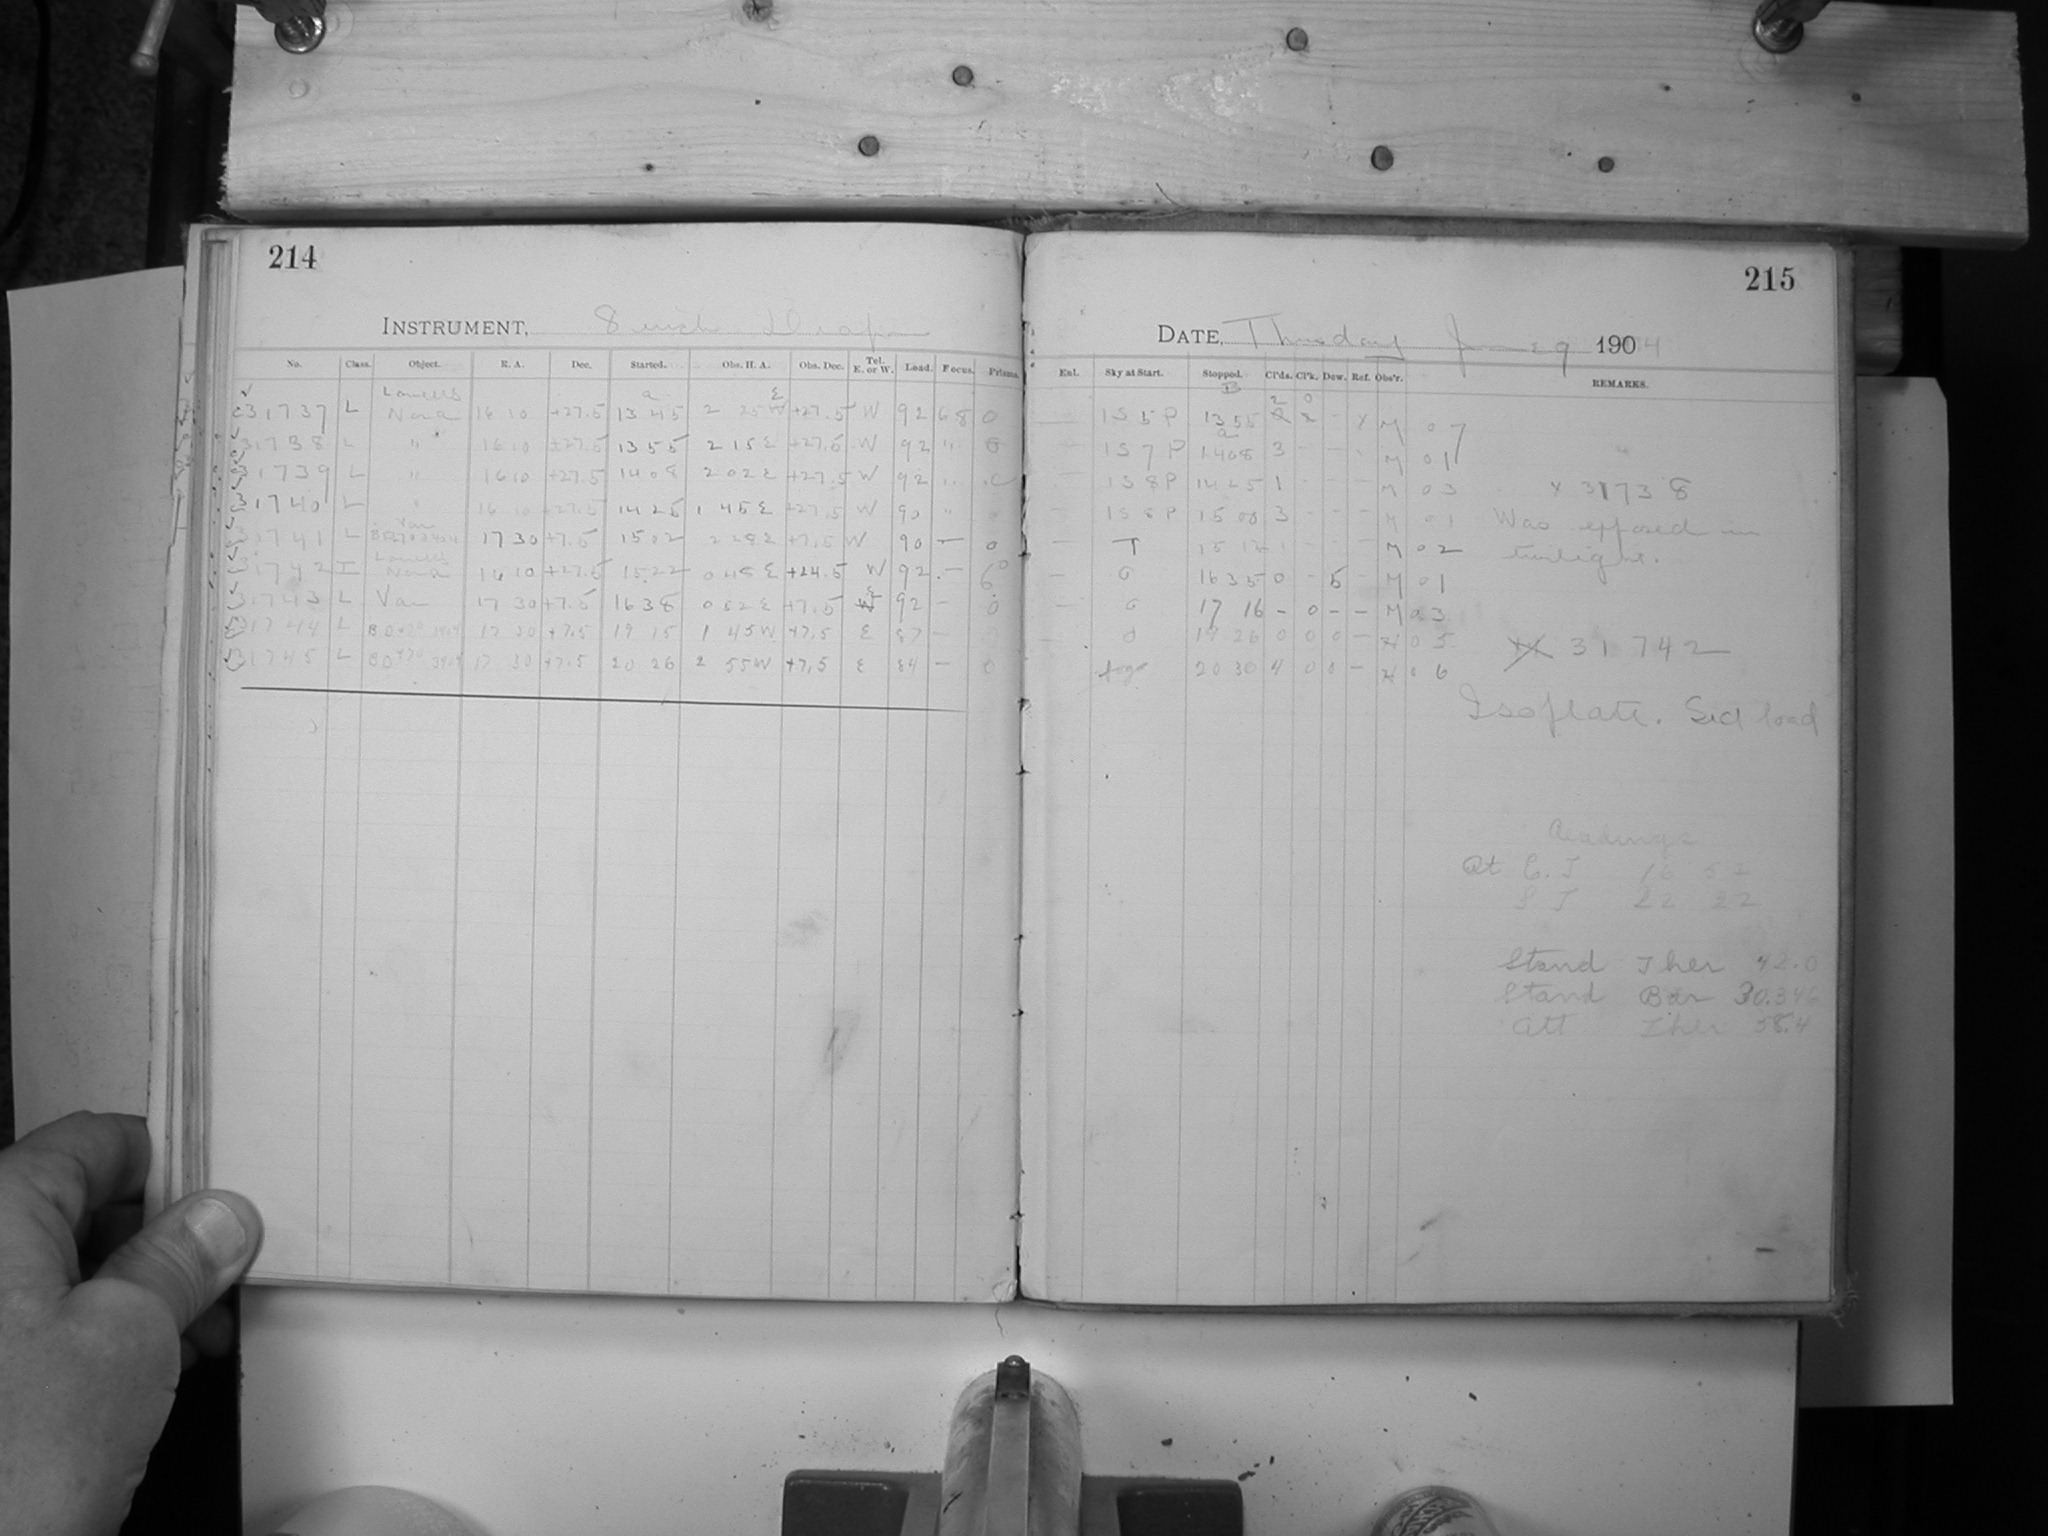 214
INSTRUMENT, 8 inch Draper
No. Class. Object. R. A. Dec. Started. Obs. H. A. Obs. Dec. Tel. E. or W. Load. Focus. Prisms.
31737 L Lowells Nova 16 10 +27.5 13 45 2 25 +27.5 W 92 68 0
31738 L " 16 10 +27.5 13 55 2 15 E +27.5 W 92 " 0
31739 L " 16 10 +27.5 14 08 2 02 E +27.5 W 92 "
31740 L " 16 10 +27.5 14 25 1 45 E +27.5 W 90 " 0
31741 L Var 17 30 +7.5 15 02 2 28 E +7.5 W 90 — 0
31742 I Lowells Nova 16 10 +27.5 15 22 0 48 E +24.5 W 92 —
31743 L Var 17 30 +7.5 16 38 0 52 E +7.5 E 92 — 0
31744 L 17 30 +7.5 19 15 1 45 W +7.5 E 87 —
31745 L 17 30 +7.5 20 26 2 55 W +7.5 E 84 — 0
215
DATE, Thursday 29 1904
Enl. Sky at Start. Stopped. Cl'ds. Cl'k. Dew. Ref. Obs'r. REMARKS.
— 1S 5P 13 55 M 07
— 1S 7P 14 08 3 - - M 01
— 1S 8P 14 25 1 - - - M 03
— 1S 8P 15 00 3 - - - M 01
— T 15 12 1 - - - M 02
— 0 16 35 0 - 5 - M 01
— 0 17 16 - 0 - - M 03
— 0 19 26 0 0 0 — 05
fog 20 30 4 0 0 — 06
x 31738
Was exposed in
twilight.
31742
Isoplate. Sed load
Readings
At C. T 16 52
S T 22 22
Stand Ther 42.0
Stand Bar 30.346
Att Ther 58.4